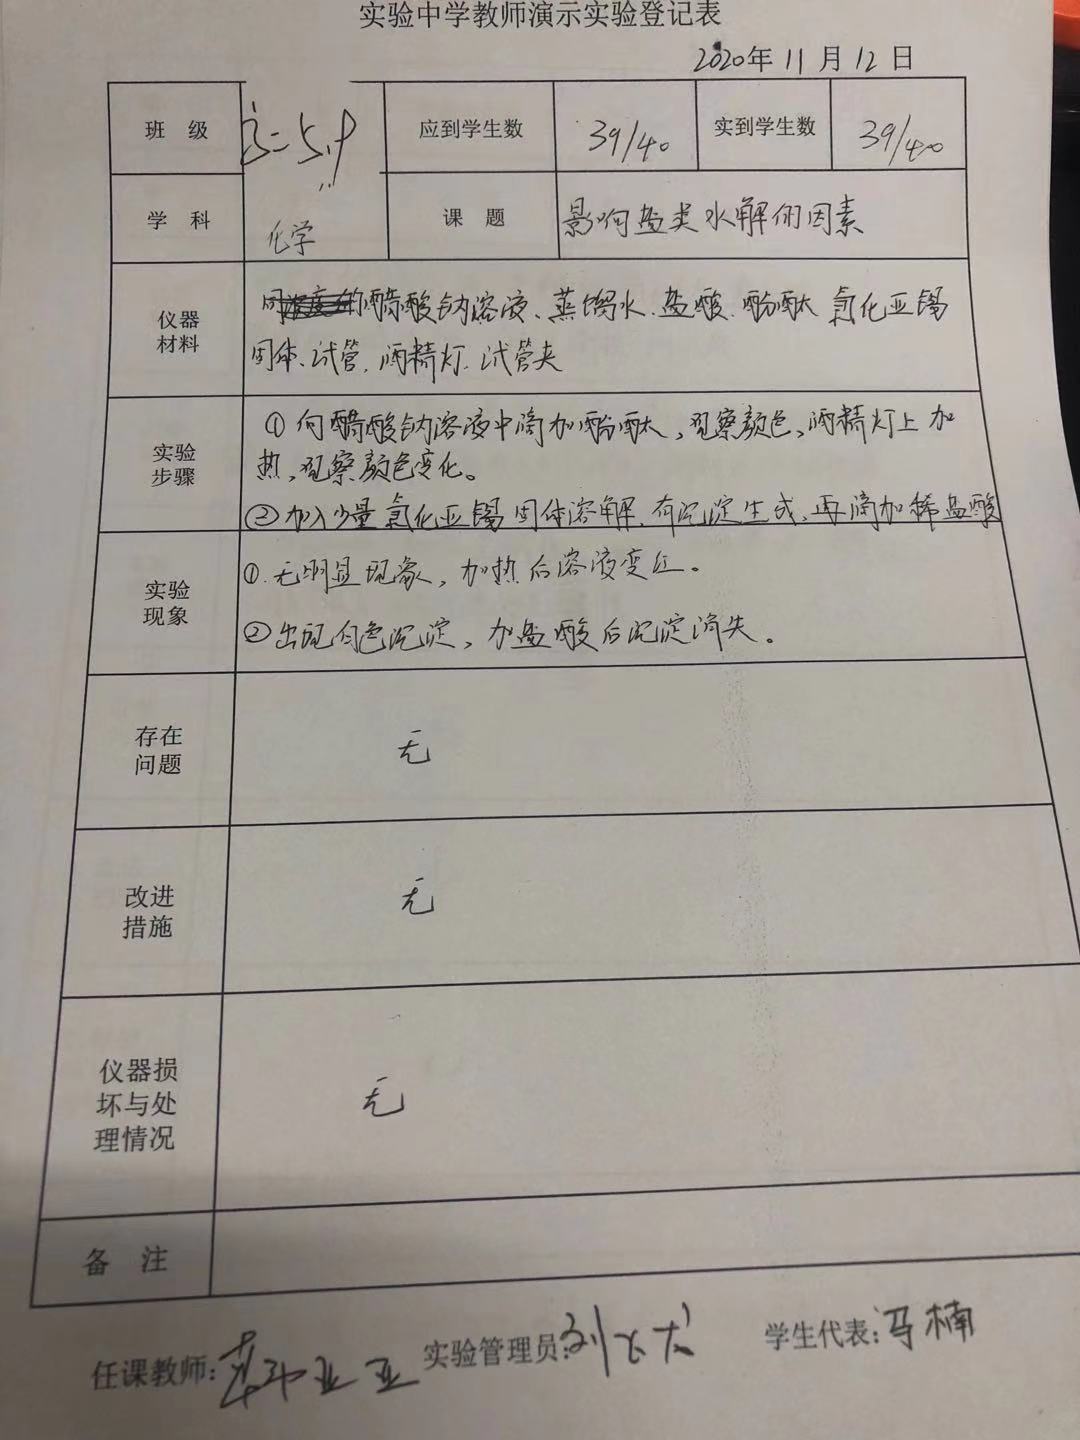 实验中学教师演示实验登记表
2020年 11 月 12 日
班 级 高二 5,9 应到学生数 39/40 实到学生数 39/40
学 科 化学 课 题 影响盐类水解的因素
仪器
材料
醋酸钠溶液、蒸馏水、盐酸、酚酞 氯化亚锡
固体、试管、酒精灯、试管夹
实验
步骤
① 向醋酸钠溶液中滴加酚酞,观察颜色,酒精灯上加
热,观察颜色变化。
② 加入少量氯化亚锡固体溶解,有沉淀生成,再滴加稀盐酸
实验
现象
①.无明显现象,加热后溶液变红。
② 出现白色沉淀,加盐酸后沉淀消失。
存在
问题
无
改进
措施
无
仪器损
坏与处
理情况
无
备 注
任课教师: 实验管理员: 学生代表:马楠